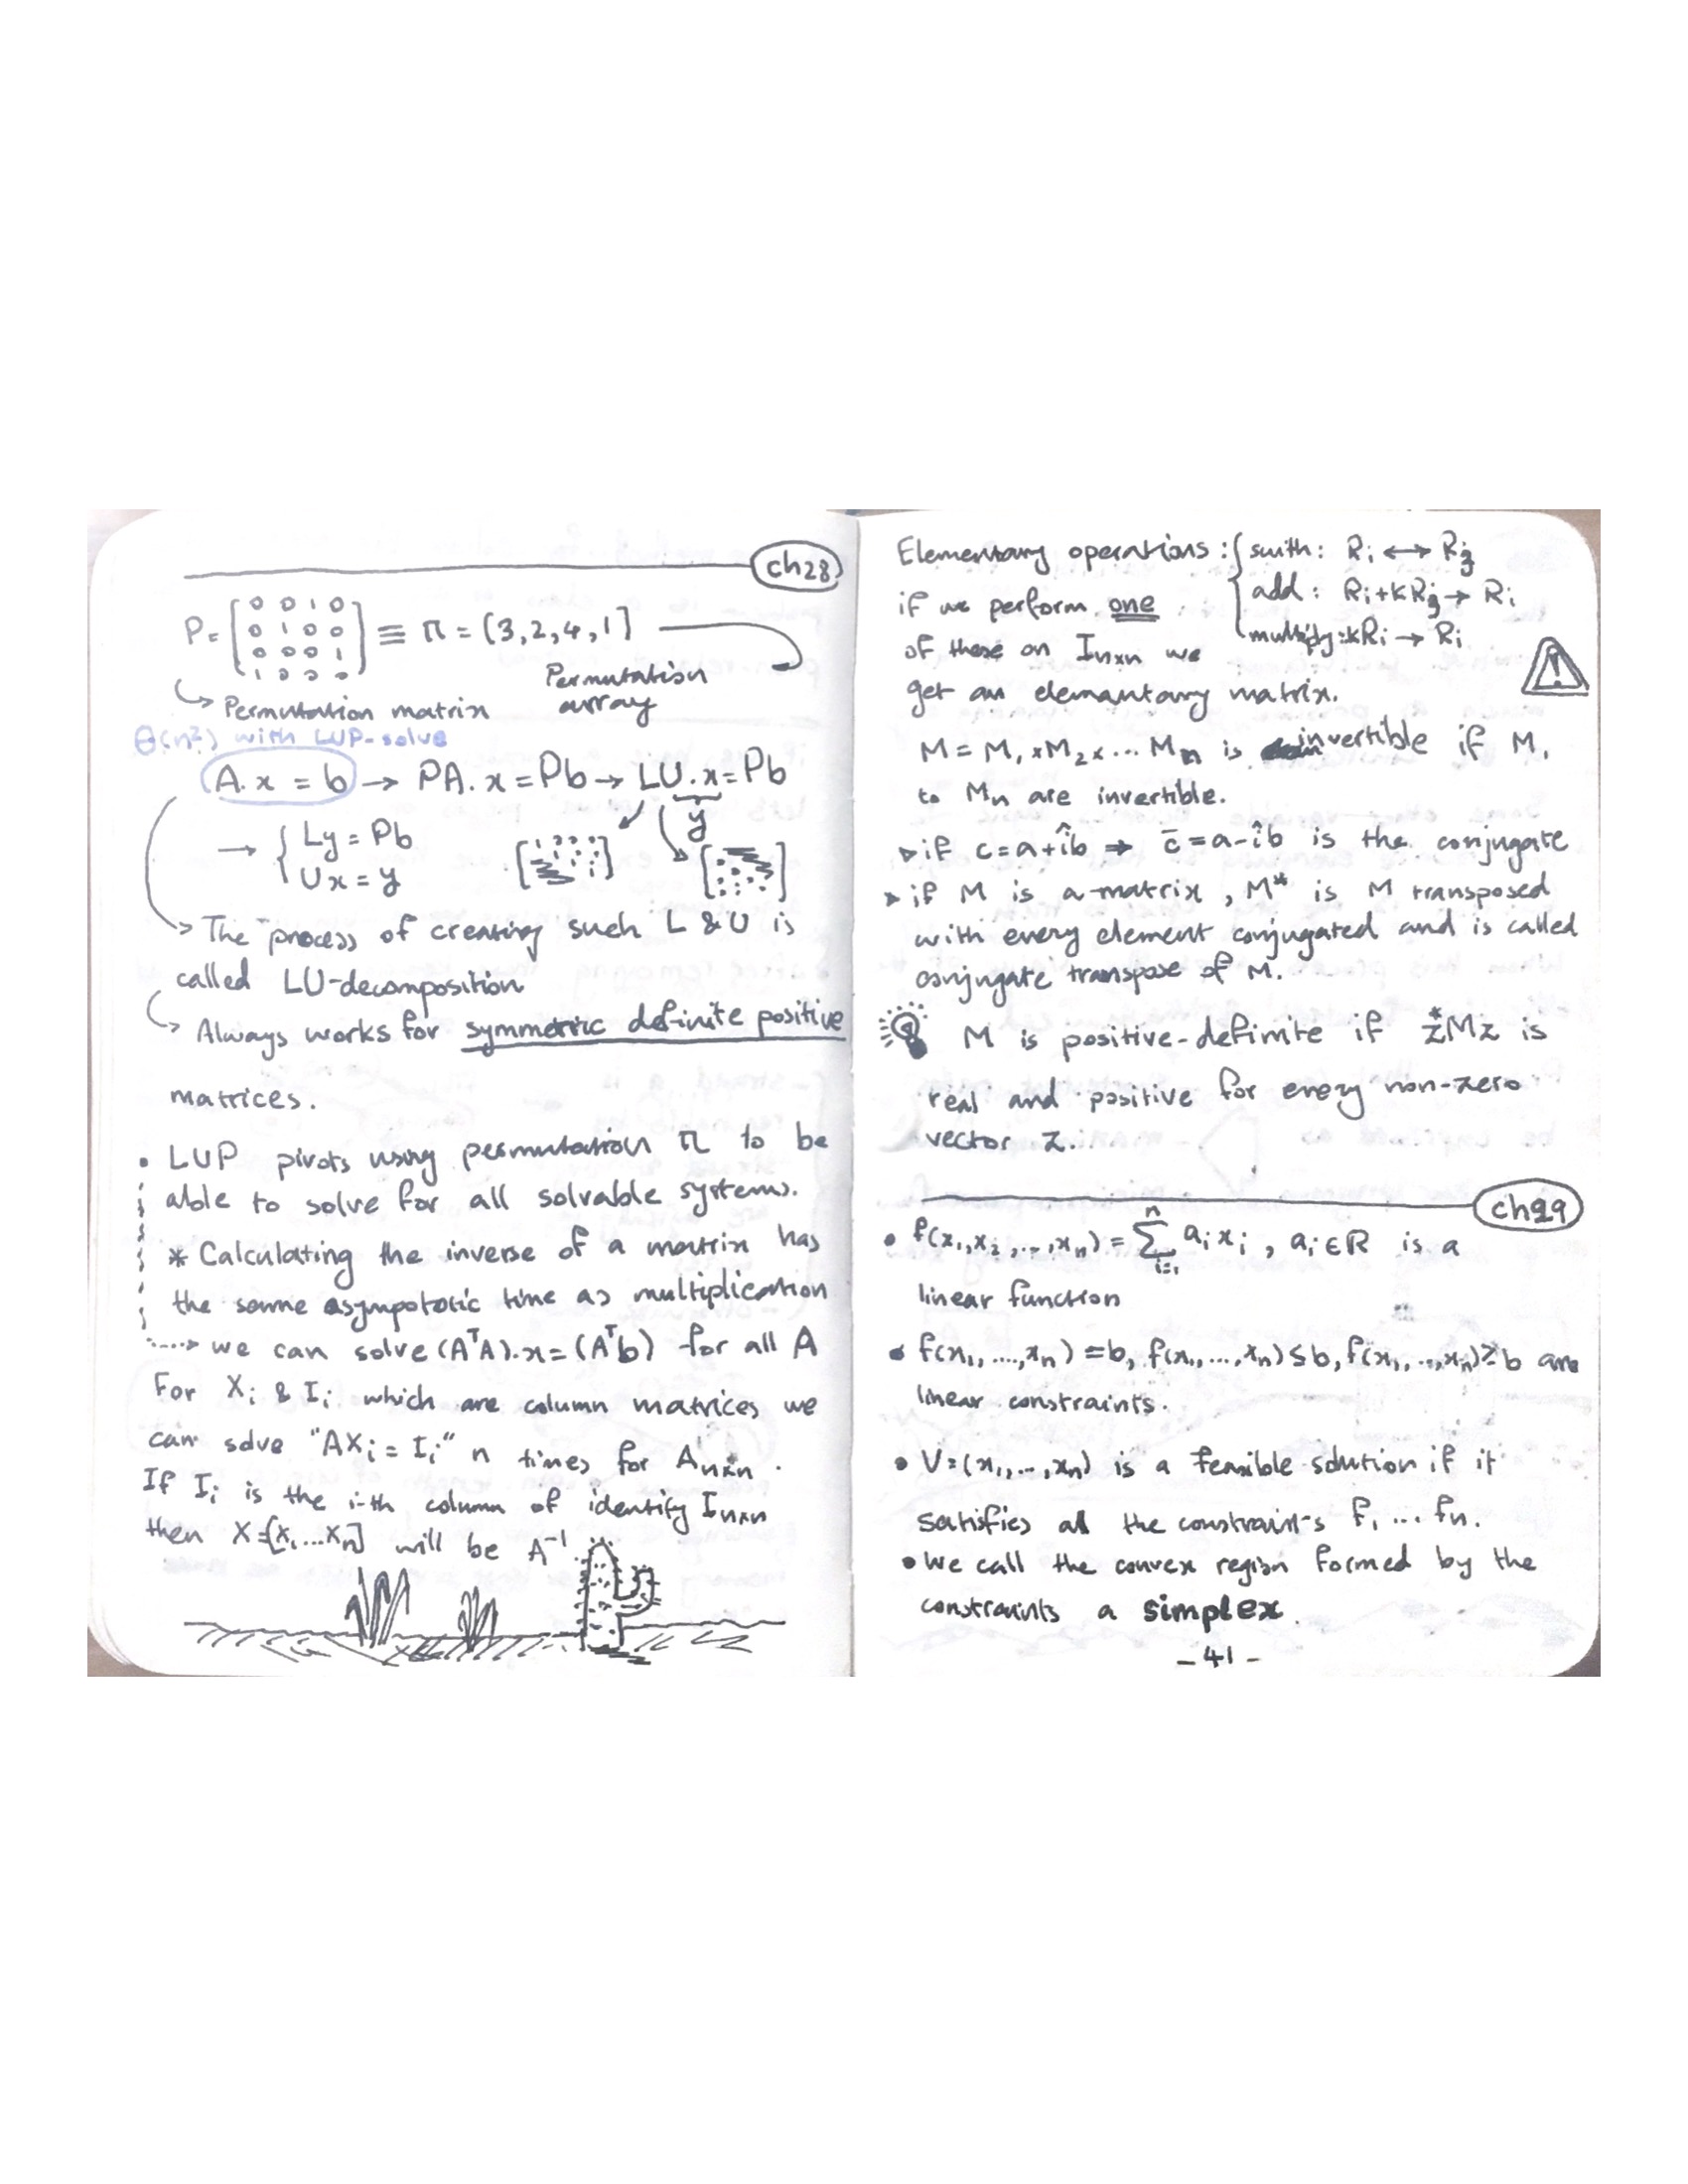 ch28
P = [0 0 1 0
0 1 0 0
0 0 0 1
1 0 0 0] ≡ π = (3,2,4,1]
Permutation array
Permutation matrix
Θ(n²) with LUP-solve
A.x = b → PA.x = Pb → LU.x = Pb
y
→ { Ly = Pb
Ux = y
The process of creating such L & U is
called LU-decomposition
Always works for symmetric definite positive
matrices.
• LUP pivots using permutation π to be
able to solve for all solvable systems.
* Calculating the inverse of a matrix has
the same asympototic time as multiplication
we can solve (AᵀA).x = (Aᵀb) for all A
For Xi & Ii which are column matrices we
can solve "AXi = Ii" n times for Anxn.
If Ii is the i-th column of identity Inxn
then X=[X1...Xn] will be A⁻¹.
Elementary operations : { swith: Ri ↔ Rj
add: Ri+kRj → Ri
multiply: kRi → Ri
if we perform one
of these on Inxn we
get an elemantary matrix.
M = M1 × M2 × ... Mn is invertible if M1
to Mn are invertible.
▷ if c = a+îb ⇒ c̄ = a-îb is the conjugate
▷ if M is a matrix, M* is M transposed
with every element conjugated and is called
conjugate transpose of M.
M is positive-definite if z*Mz is
real and positive for every non-zero
vector z.
ch29
• f(x1,x2,...,xn) = Σ(i=1, n) ai xi , ai ∈ R is a
linear function
• f(x1,...,xn) = b, f(x1,...,xn) ≤ b, f(x1,...,xn) ≥ b are
linear constraints.
• V=(x1,...,xn) is a feasible solution if it
satisfies all the constraints f1 ... fn.
• We call the convex region formed by the
constraints a simplex.
- 41 -